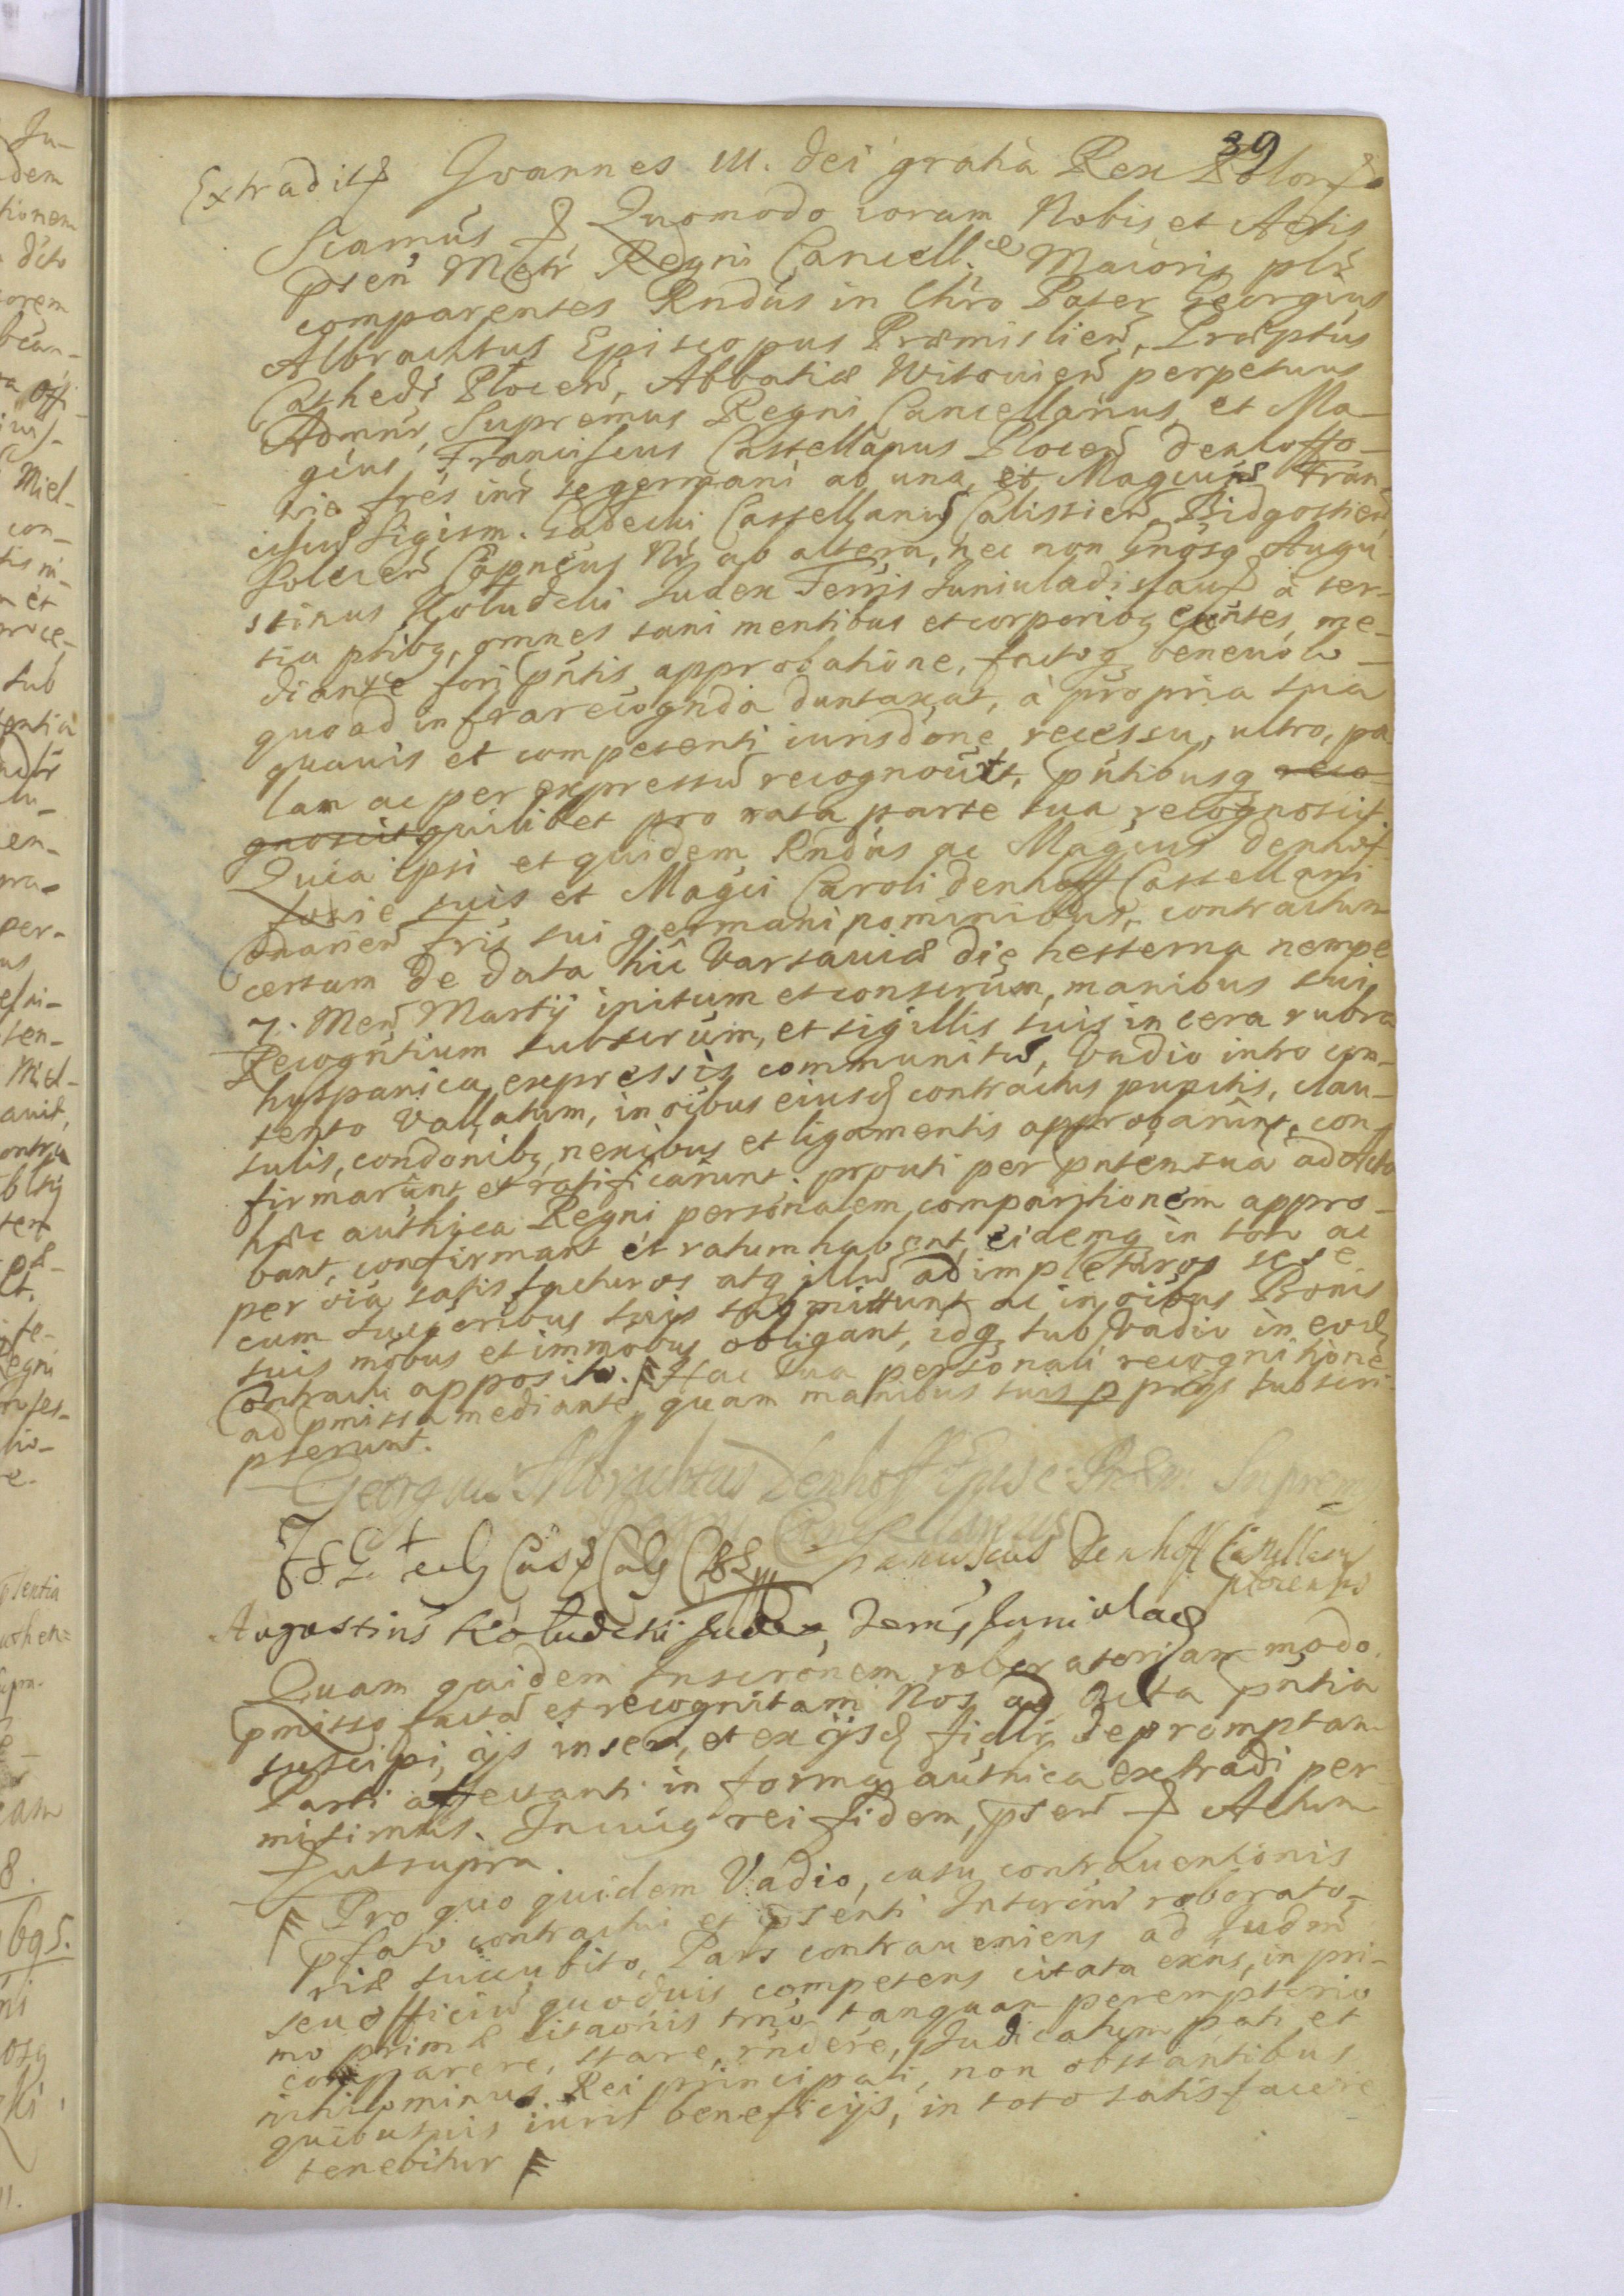 39
Extradit
Joannes III. Dei gratia Rex Polon
Scamus Quomodo coram Nobis et Actis
psen Metr Regni Cancell.æ Maioris plr
comparentes Rndus in Chro Pater Georgius
Albrachtus Episcopus Præmislien, Præptus
Cathedr Plocen, Abbatiæ Witovien perpetuus
Admnr, Supremus Regni Cancellarius, et Ma-
gcus Franciscus Castellanus Plocen Denhoffo-
wie frês inr se germani ab una, et Magcus Fran-
ciscus Sigism. Gadecki Castellanus Calissien, Bidgostien
Solecen Capneus Nr ab altera, nec non Gnosq Augu-
stinus Kołudcki Judex Terris Juniuladislau à ter-
tia ptibq, omnes sani mentibus et corporibq exntes, me-
diante fori pntis approbatione, factoq benevolo
quoad infrarecognda duntaxat, à propria sua
quavis et competenti iurisdone recessu, ultro, pa
lam ac per expressu recognovit, pntibusq reco-
gnoscit quilibet pro rata parte sua recognoscit.
Quia ipsi et quidem Rndus ac Magcus Denhof
fowie suis et Magci Caroli Denhoff Castellani
Conarien fris sui germani nominibus, contractum
certum de data hic Varsaviæ die hesterna nempe
7. Men Martij initum et conscrium, manibus sui
Recogntium subscrium, et sigillis suis in cera rubra
hyspanica expressis communitu, Vadio intro con-
tento Vallatum, in oibus eiusd contractus punctis, clau-
sulis, condonibq, nexibus et ligamentis approbarunt, con
firmarunt et ratificarunt. prouti per pntem sua ad Acta
hæc authica Regni personalem comparitionem appro-
bant, confirmant et ratum habent, eidemq in toto ac
per oia satis facturos atq illu adimpleturos sese
cum succeribus suis submittunt ac in oibus Bonis
suis mobus et immobus obligant, idq sub Vadio in eod
Contractu apposito. Hac sua personali recognitione
ad pmissa mediante, quam manibus suis p prijs subscri-
pserunt.
Georgius Albrachtus Denhoff Episc: Præm. Suprem
Regni Cancellarius
Franciscus Denhoff Castellanus
plocensis
Augustins Kołudcki Judex Terris Juniulad
Quam quidem Inscronem roboratoriam modo
pmisso facta et recognitam Nos ad Acta pntia
suscipi, ijs inseri, et ex ijsd fidlr depromptam
Parti affectanti in forma authica extradi per
misimus. In cuiq rei fidem, psen Actum
ut supra.
Pro quo quidem Vadio, casu contraventionis
pfato contractui et psenti Inscrini roborato-
riæ succubito, Pars contraveniens ad Iudm
seu officiu quodvis competens citata exns, in pri-
mo primæ citaonis trno tanquam peremptorio
comparere, stare, rndere, Judicatum pati et
nihilominus Rei principali, non obstantibus
quibusvis iuris beneficijs, in toto satisfacere
tenebitur